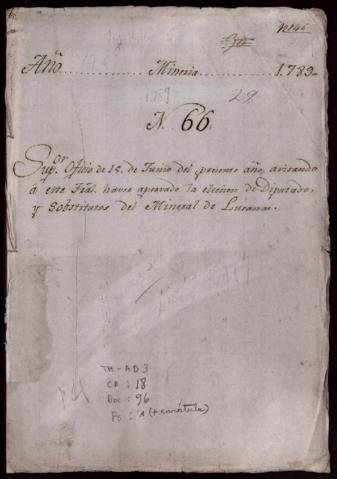 12146
30
Año.............. Mineria.............. 1.789
1789
29
N. 66.
Supor. Oficio de 15. de Junio del presente año, avisando
á este Tral. haver aprovado la eleccion de Diputados,
y Sobstitutos del Mineral de Lucanas.
TM-AD3
CA : 18
Doc : 96
Fs : 1 (+ carátula)